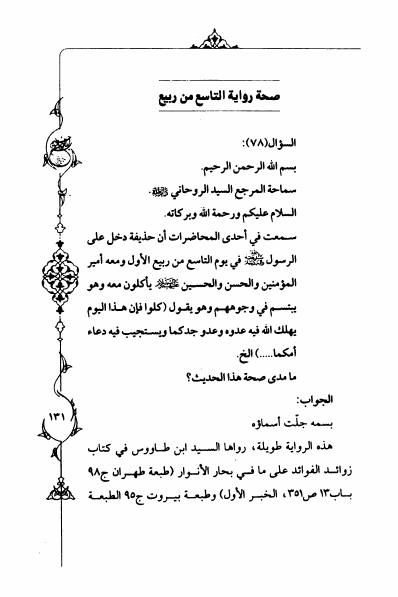 صحة رواية التاسع من ربيع
السؤال(٧٨):
بسم الله الرحمن الرحيم.
سماحة المرجع السيد الروحاني
السلام عليكم ورحمة الله وبركاته.
سمعت في أحدى المحاضرات أن حذيفة دخل على
الرسول ﷺ في يوم التاسع من ربيع الأول ومعه أمير
المؤمنين والحسن والحسين يأكلون معه وهو
يبتسم في وجوههم وهو يقول (كلوا فإن هذا اليوم
يهلك الله فيه عدوه وعدو جدكما ويستجيب فيه دعاء
أمكما.....) الخ.
ما مدى صحة هذا الحديث؟
الجواب:
بسمه جلّت أسماؤه
هذه الرواية طويلة، رواها السيد ابن طاووس في كتاب
زوائد الفوائد على ما في بحار الأنوار (طبعة طهران ج٩٨
باب١٣ ص٣٥١، الخبر الأول) وطبعة بيروت ج٩٥ الطبعة
١٣١